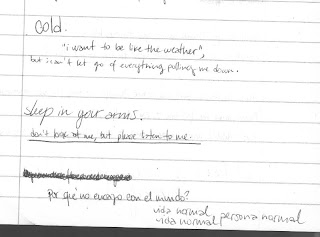 cold.
"i want to be like the weather",
but i can't let go of everything pulling me down.
sleep in your arms.
don't look at me, but please listen to me.
Por qué no encajo con el mundo?
vida normal, persona normal
vida normal